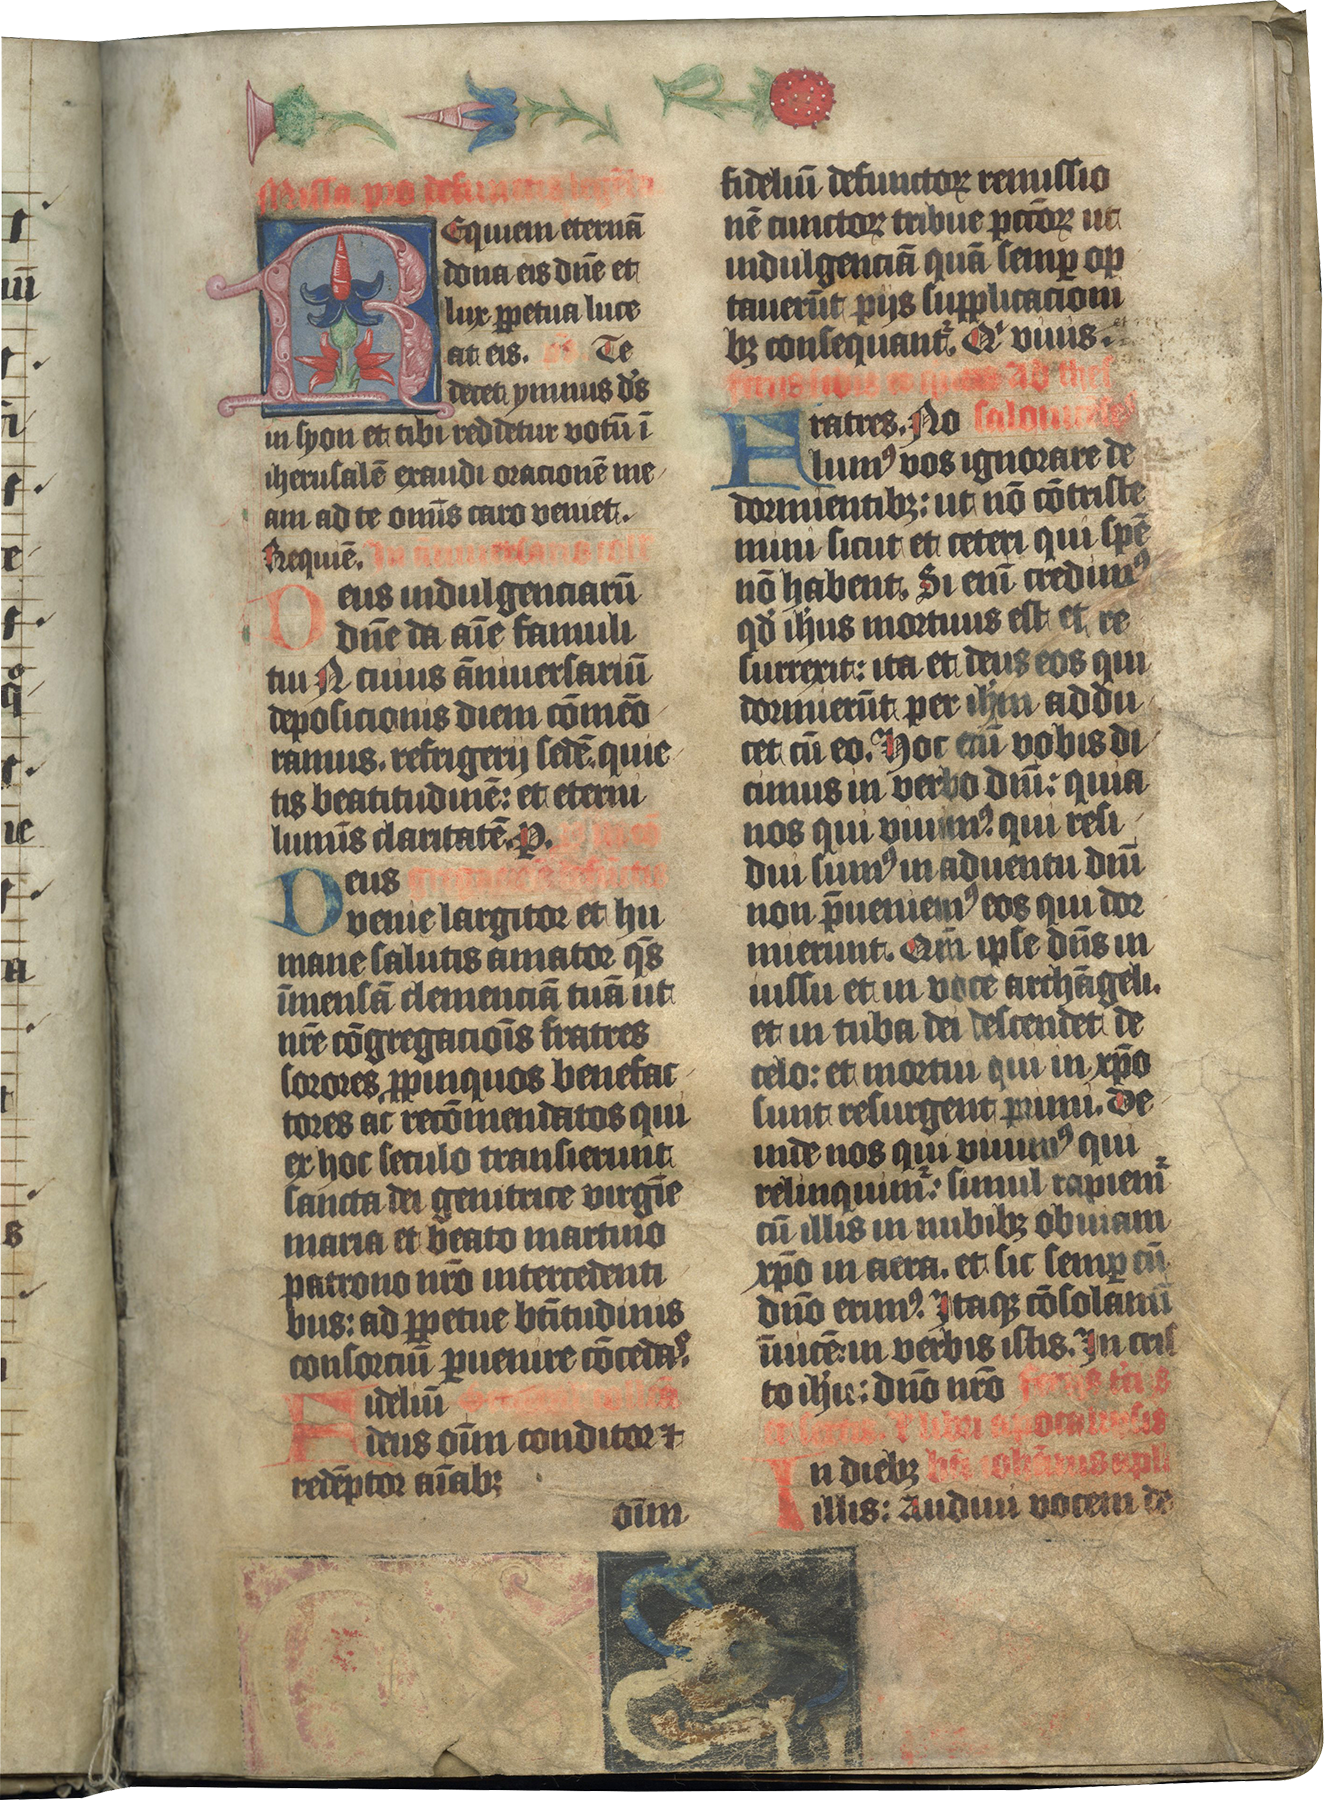 Missa pro defunctis legenda
Requiem eternā
dona eis dn̄e et
lux ꝑpetua luce
at eis. Te
decet ymnus d̄s
in syon et tibi reddetur votū ī
iherusalē exaudi oracionē me
am ad te om̄is caro veniet.
Requiē. In anniversario coll
Deus indulgenciarū
dn̄e da aīe famuli
tui N cuius āniuersariū
deposicionis diem cōmēo
ramus. refrigerij sedē. quie
tis beatitudinē: et eterni
luminis claritatē. P.
Deus
venie largitor et hu
mane salutis amator q̄s
īmensā clemenciā tuā ut
nr̄e cōgregaciōis fratres
sorores ꝓpinquos benefac
tores ac recōmendatos qui
ex hoc seculo transierunt
sancta dei genitrice virgīe
maria et beato martino
patrono nr̄o intercedenti
bus: ad ꝑpetue bt̄itudinis
consorciū ꝑuenire cōcedas.
Fidelium
deus oīm conditor ⁊
redēptor aīabꝫ
oīm
fideliū defunctoꝝ remissio
nē cunctoꝝ tribue pc̄toꝝ ut
indulgenciā quā semꝑ op
tauerūt pijs supplicacioni
bꝫ consequant᷑. Q' viuis.
Fratres. No
lumꝰ vos ignorare de
dormientibꝫ: ut nō cōtriste
mini sicut et ceteri qui spē
nō habent. Si enī credimꝰ
qd̕ ih̄us mortuus est et re
surrexit: ita et deus eos qui
dormierūt per ih̄m addu
cet cū eo. Hoc enī vobis di
cimus in verbo dn̄i: quia
nos qui viuimꝰ qui resi
dui sumꝰ in aduentu dn̄i
non p̄ueniemꝰ eos qui dor
mierunt. Qm̄ ipse dn̄s in
iussu et in voce archāgeli.
et in tuba dei descendet de
celo: et mortui qui in xp̄o
sunt resurgent primi. De
inde nos qui viuimꝰ qui
relinquim᷑: simul rapiem᷑
cū illis in nubibꝫ obuiam
xp̄o in aera. et sic semꝑ cū
dn̄o erimꝰ. Itaqꝫ cōsolamī
īuicē in verbis istis. In cris
to ih̄u: dn̄o nr̄o
In diebꝫ
illis: Audiui vocem de